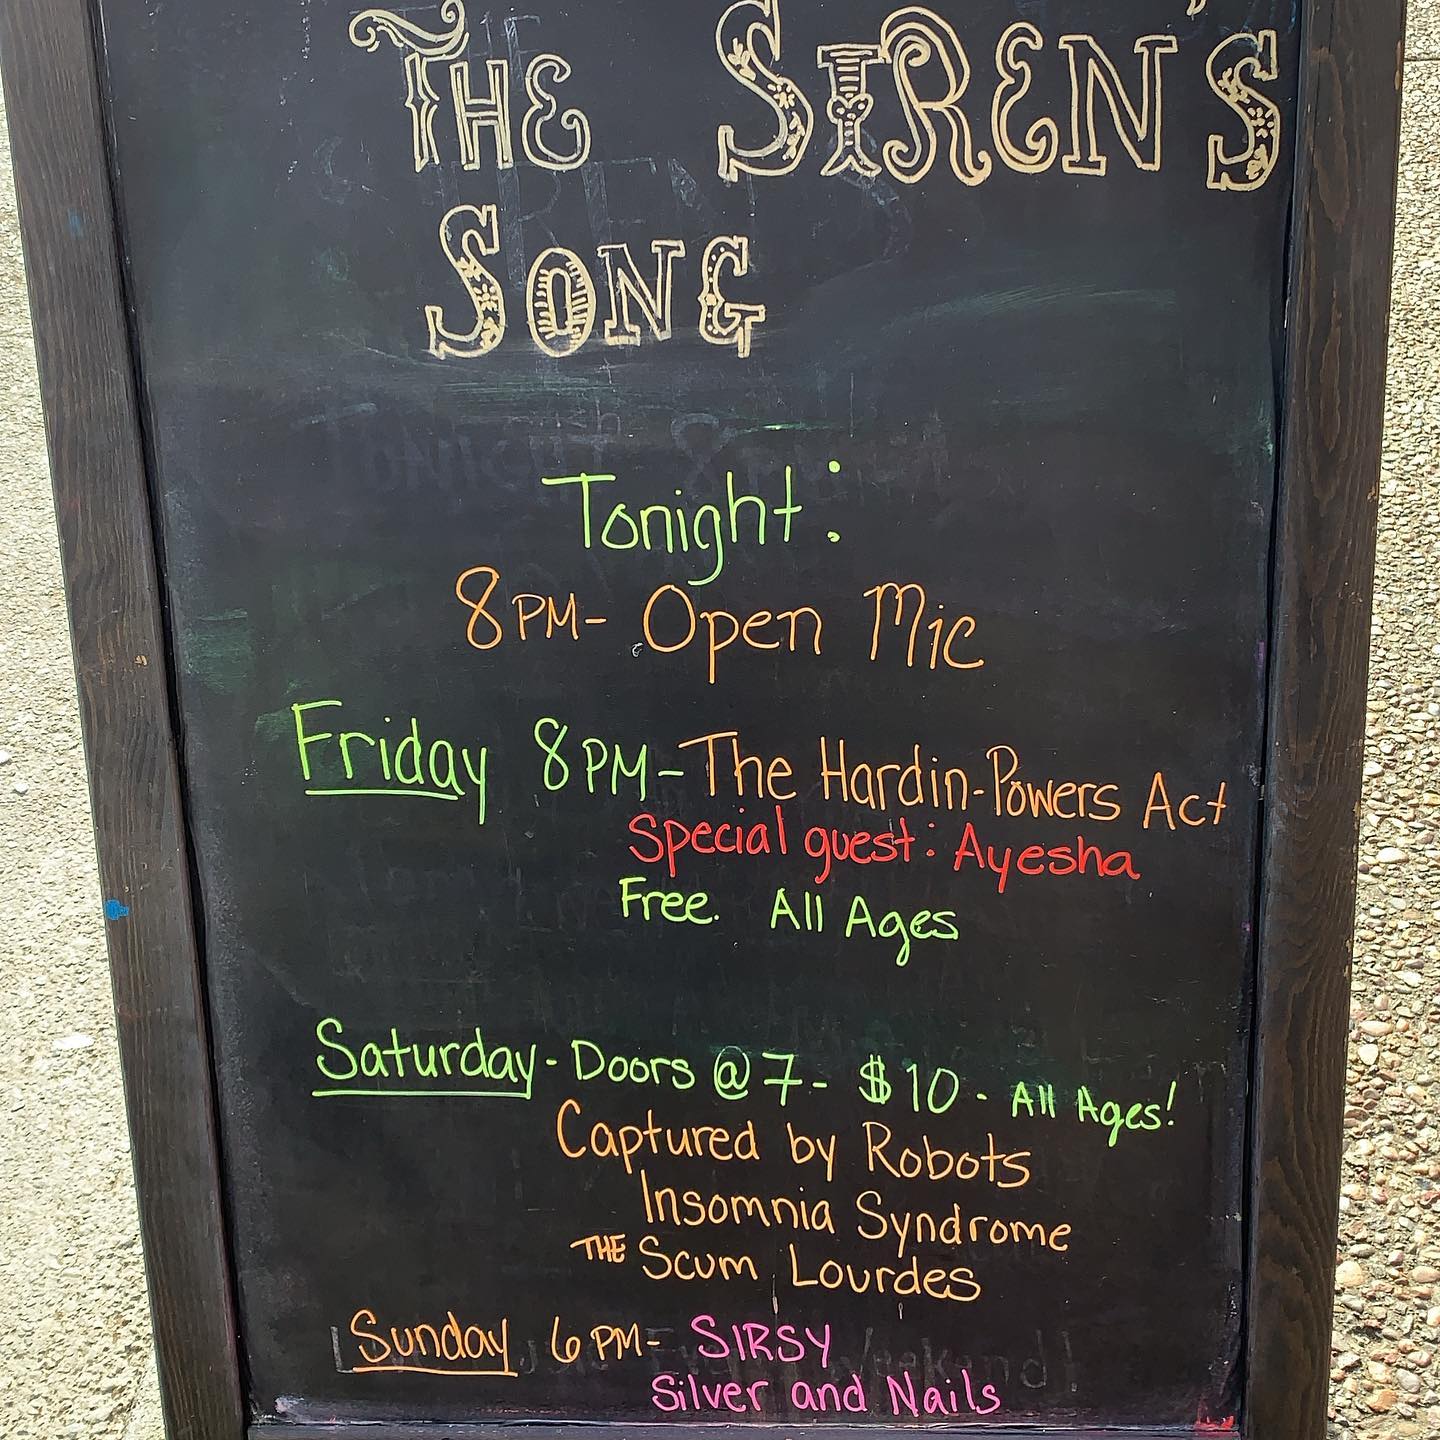 THE SIREN'S
SONG
Tonight:
8PM- Open Mic
Friday 8PM- The Hardin-Powers Act
Special guest: Ayesha
Free. All Ages
Saturday - Doors @ 7 - $10 - All Ages!
Captured by Robots
Insomnia Syndrome
THE Scum Lourdes
Sunday 6PM- SIRSY
Silver and Nails